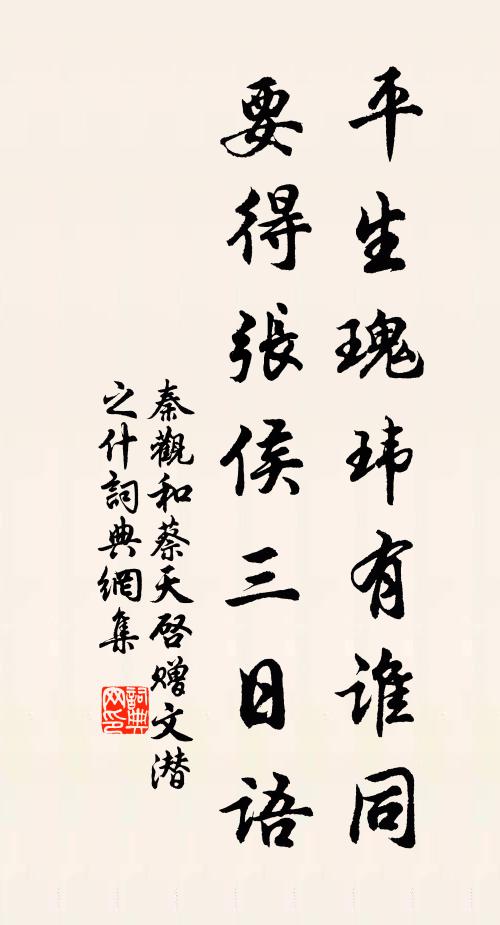 平生瑰玮有谁同
要得張侯三日語
秦觀和蔡天启赠文潜
之什詞典網集
詞典网印